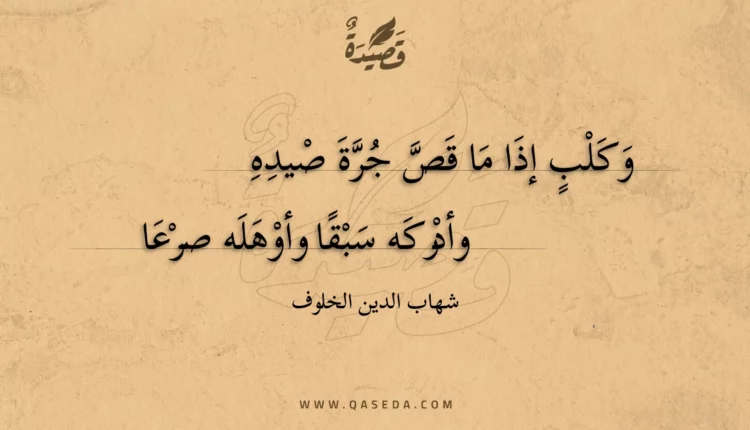 قَصِيْدَةٌ
وَكَلْبٍ إذَا مَا قَصَّ جُرَّةَ صْيدِهِ
وأدْركَه سَبْقًا وأوْهَلَه صرْعَا
شهاب الدين الخلوف
WWW.QASEDA.COM